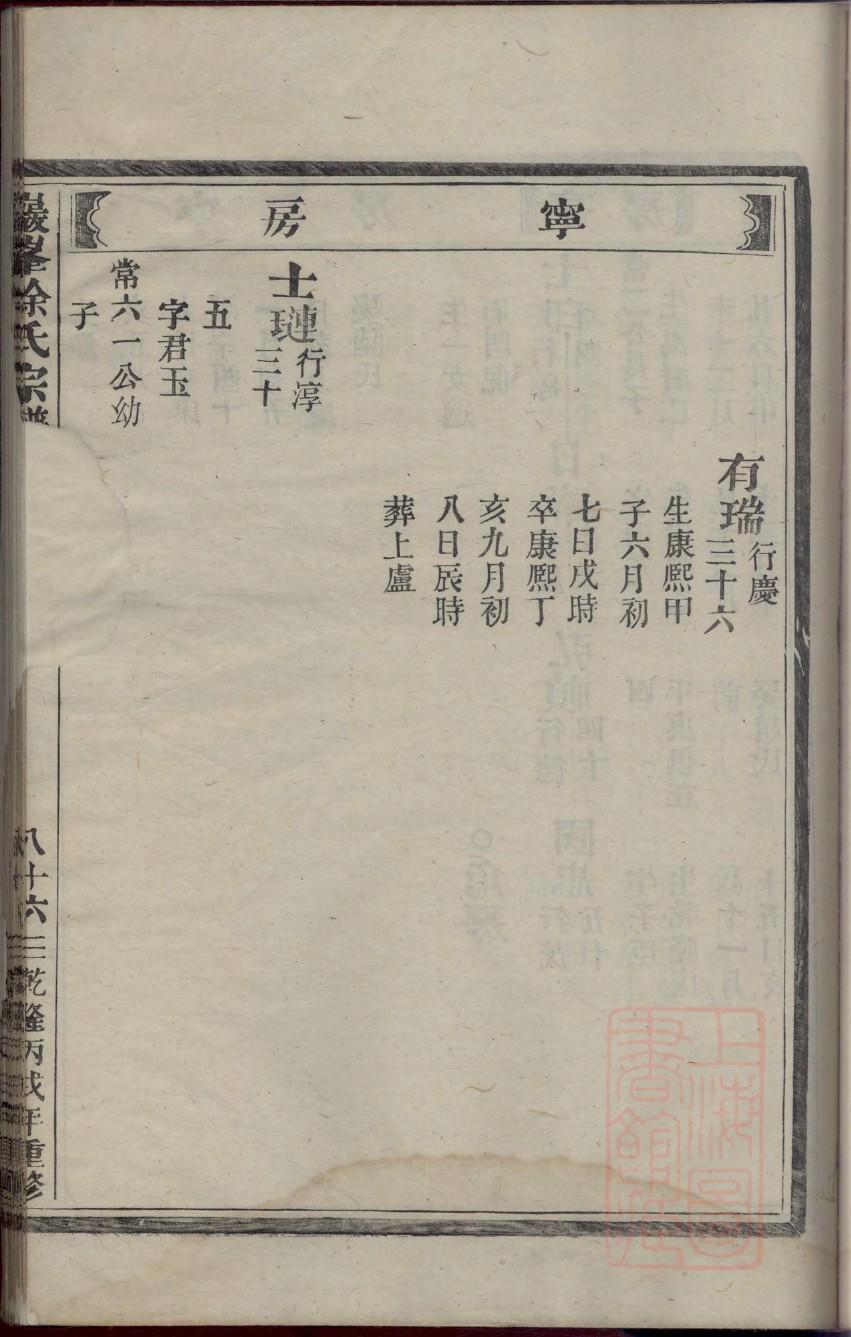 寧房
有瑞行慶三十六
生康熈甲
子六月初
七日戌時
卒康熈丁
亥九月初
八日辰時
葬上盧
士璉行淳三十
五
字君玉
常六一公幼
子
巖峯徐氏宗譜
八十六
三
乾隆丙戌年重修
上海圖書館藏